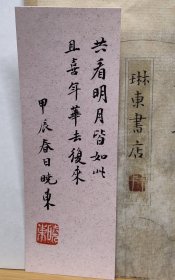 共看明月皆如此
且喜年華去復來
甲辰春日晓東
琳東書店